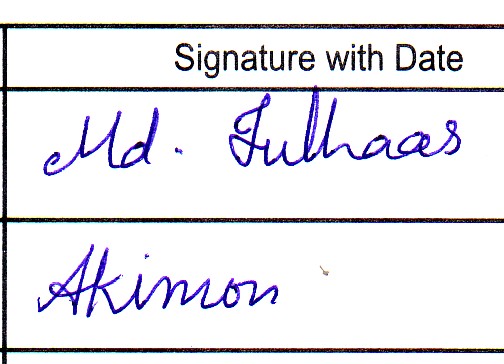 Signature with Date
Md. Julhaas
Akimon